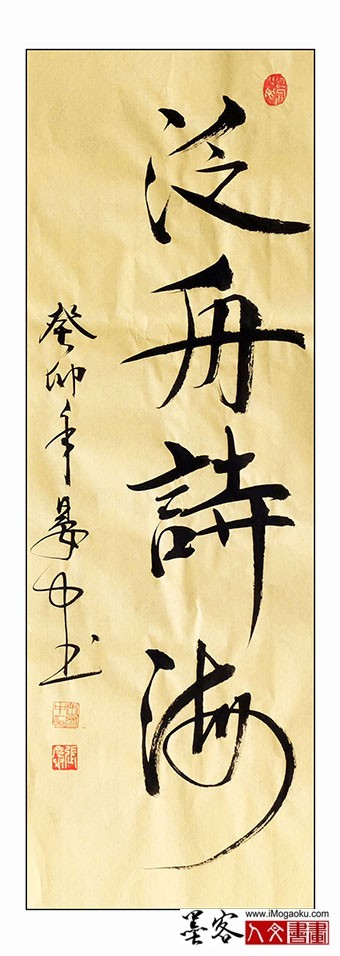 泛舟詩海
癸卯年晏中书
墨客
www.iMogaoku.com
人文書畫